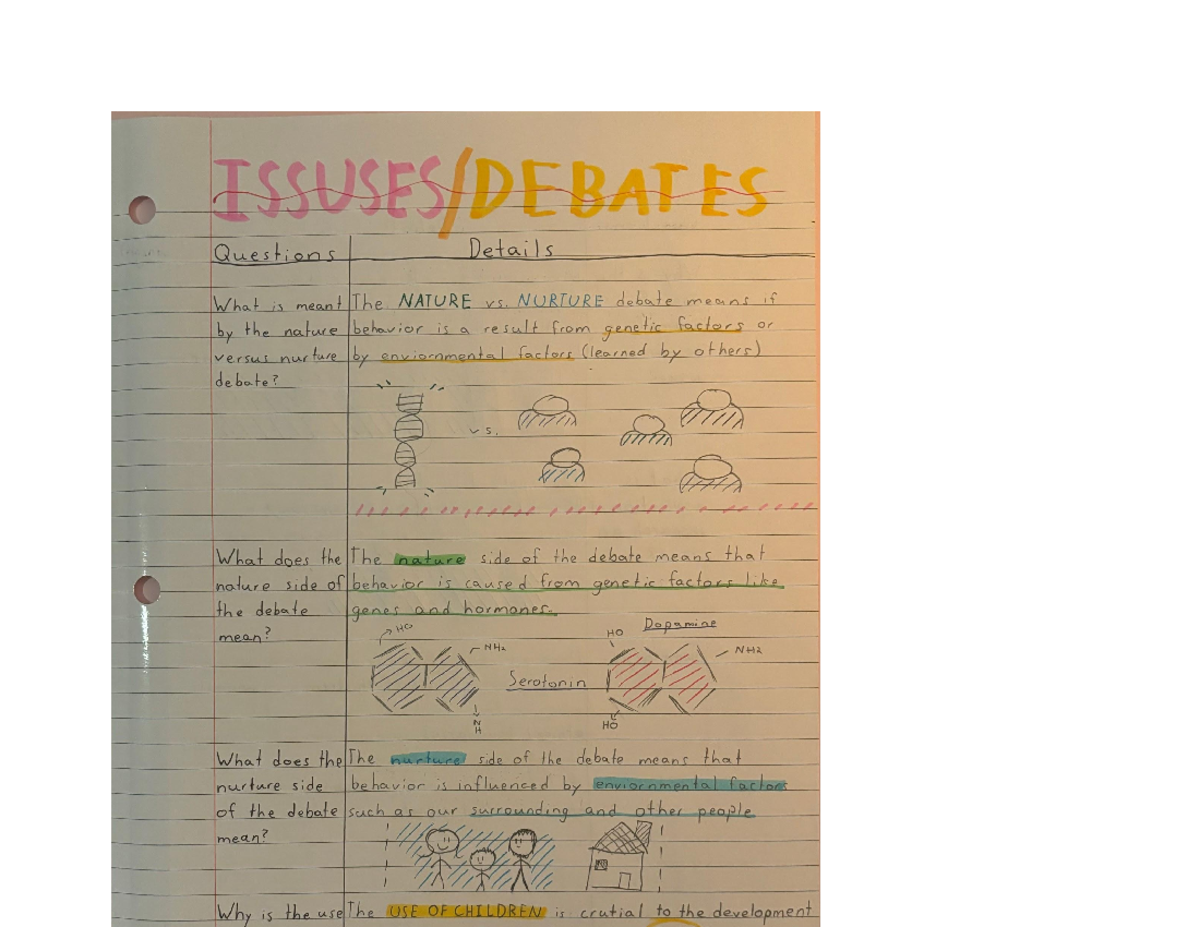 ISSUSES/DEBATES
Questions Details
What is meant The NATURE vs. NURTURE debate means if
by the nature behavior is a result from genetic factors or
versus nurture by enviornmental factors (learned by others)
debate?
vs.
What does the The nature side of the debate means that
nature side of behavior is caused from genetic factors like
the debate genes and hormones.
mean?
HO
NH2
Serotonin
N
H
Dopamine
HO
NH2
HO
What does the The nurture side of the debate means that
nurture side behavior is influenced by enviornmental factors
of the debate such as our surrounding and other people
mean?
Why is the use The USE OF CHILDREN is crutial to the development